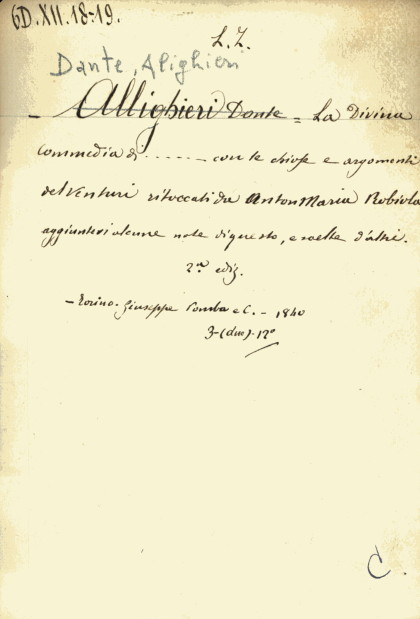 6D.XII.18-19.
L.Z.
Dante, Alighieri
Allighieri Dante = La Divina
Commedia di ....... con le chiose e argomenti
del Venturi ritoccati da Anton Maria Robiola
aggiuntevi alcune note di questo, e scelte d'altri.
2ª ediz.
- Torino. Giuseppe Pomba e C. - 1840
(due) 12°
C.